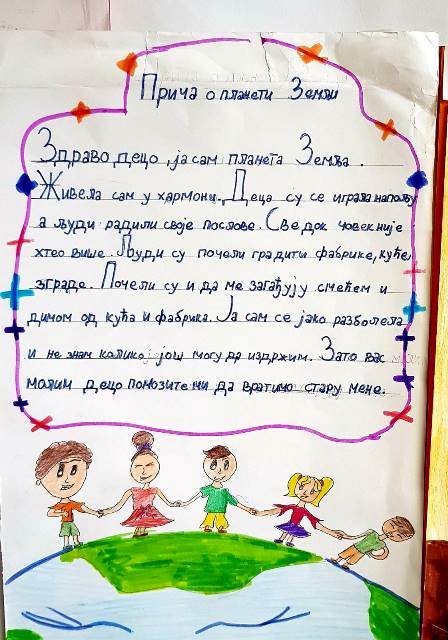 Прича о планети Земљи
Здраво децо, ја сам планета Земља.
Живела сам у хармонц. Деца су се играла напољу
а људи радили своје послове. Све док човек није
хтео више. Људи су почели градити фабрике, куће,
зграде. Почели су и да ме загађују смећем и
димом од кућа и фабрика. Ја сам се јако разболела
и не знам колико још могу да издржим. Зато вас
молим децо помозите ми да вратимо стару мене.